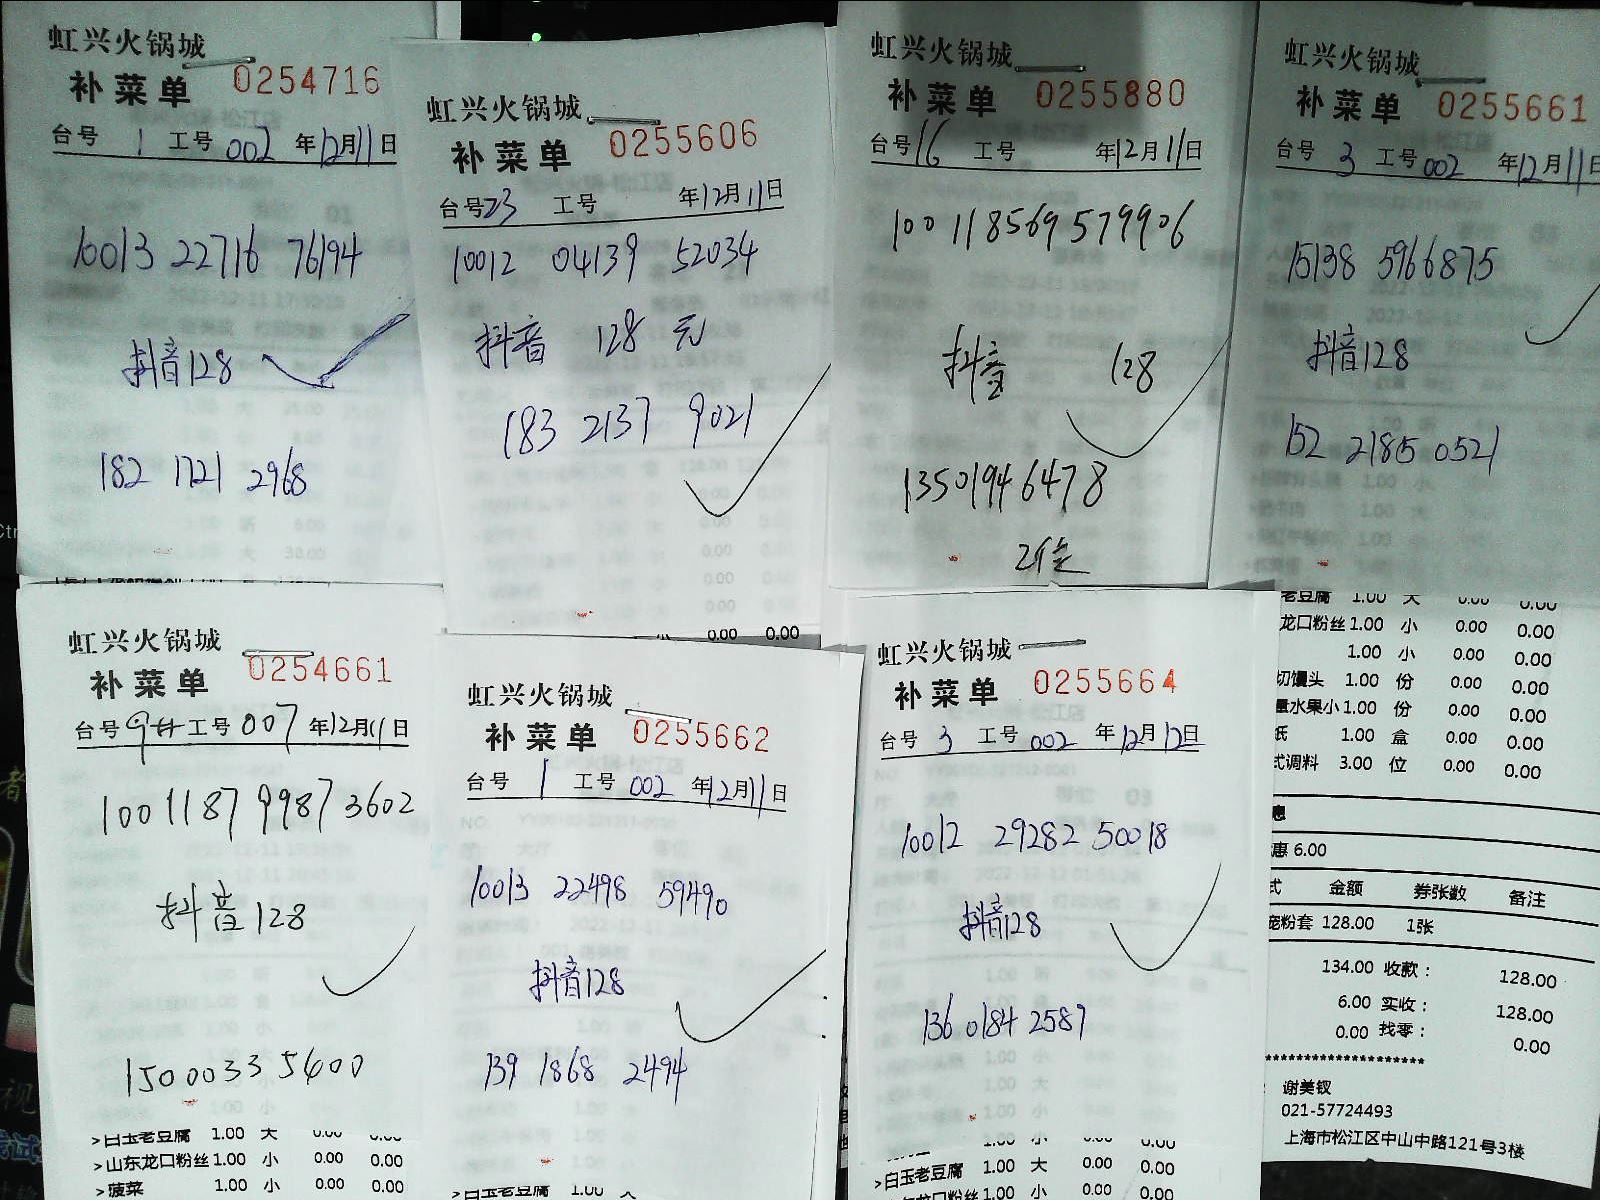 虹兴火锅城
补菜单 0254716
台号 1 工号 002 年12月11日
10013 22716 76194
抖音128
182 1721 2968
虹兴火锅城
补菜单 0255606
台号23 工号 年12月11日
10012 04139 52034
抖音 128 元
183 2137 9021
0.00 0.00
虹兴火锅城
补菜单 0255880
台号16 工号 年12月11日
100118569579906
抖音 128
13501946478
2位
虹兴火锅城
补菜单 0255661
台号 3 工号 002 年12月11日
15138 5966875
抖音128
152 2185 0521
老豆腐 1.00 大 0.00 0.00
龙口粉丝 1.00 小 0.00 0.00
1.00 小 0.00 0.00
切馒头 1.00 份 0.00 0.00
量水果小 1.00 份 0.00 0.00
纸 1.00 盒 0.00 0.00
式调料 3.00 位 0.00 0.00
惠 6.00
式 金额 券张数 备注
宠粉套 128.00 1张
134.00 收款： 128.00
6.00 实收： 128.00
0.00 找零： 0.00
谢美钗
021-57724493
上海市松江区中山中路121号3楼
虹兴火锅城
补菜单 0254661
台号 9# 工号 007 年12月11日
1001187999873602
抖音128
15000335400
>白玉老豆腐 1.00 大 0.00 0.00
>山东龙口粉丝 1.00 小 0.00 0.00
>菠菜 1.00 小 0.00 0.00
虹兴火锅城
补菜单 0255662
台号 1 工号 002 年12月11日
10013 22498 59490
抖音128
139 1868 2494
>白玉老豆腐 1.00 大
虹兴火锅城
补菜单 0255664
台号 3 工号 002 年12月12日
10012 29282 50018
抖音128
136 0184 2587
1.00 小 0.00 0.00
>白玉老豆腐 1.00 大 0.00 0.00
龙口粉丝 1.00 小 0.00 0.00